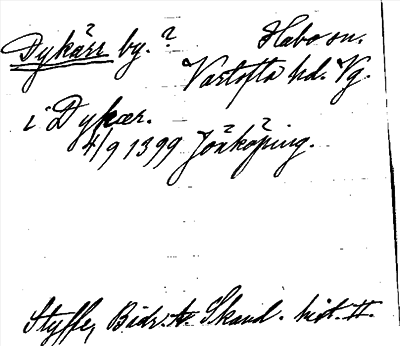 Dykärr by. ? Habo sn.
Vartofta hd. Vg.
i Dykær.
4/9 1399 Jönköping.
Styffe, Bidr. t. Skand. hist. II.